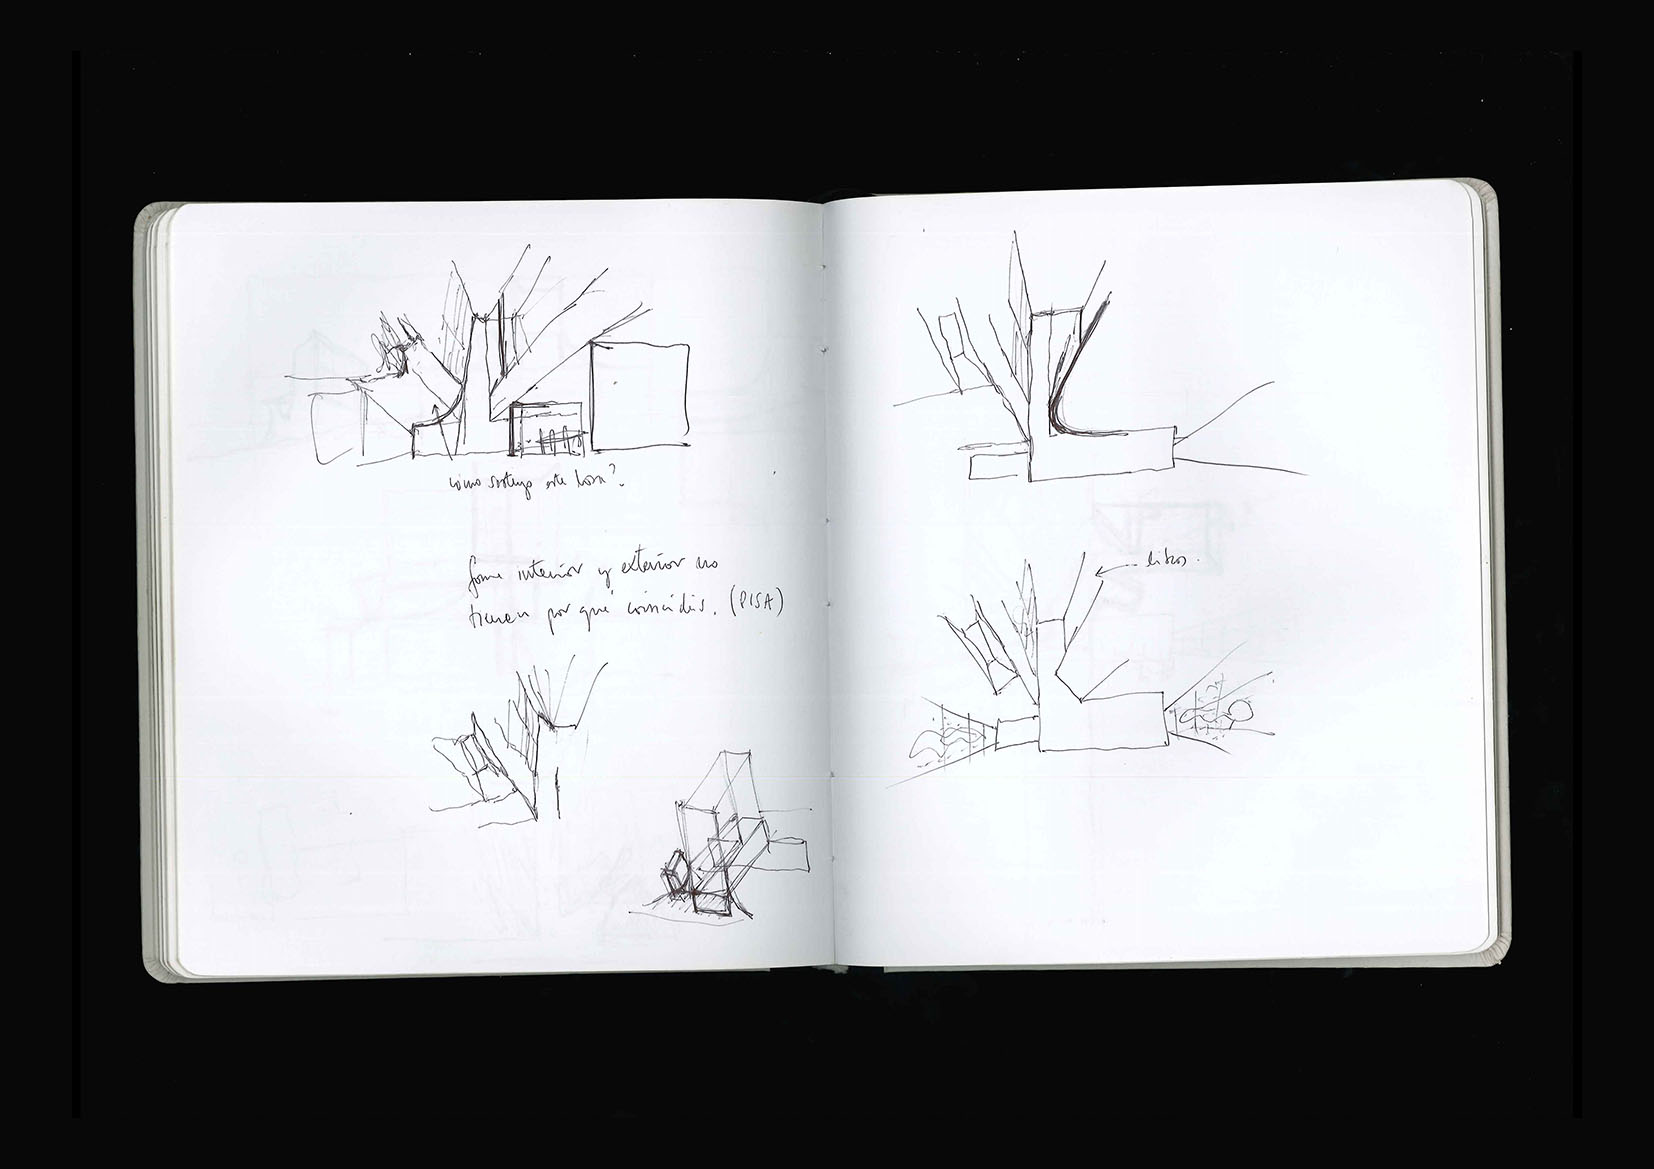 cómo sostengo esta losa?
forma interior y exterior no
tienen por qué coincidir. (PISA)
libros.